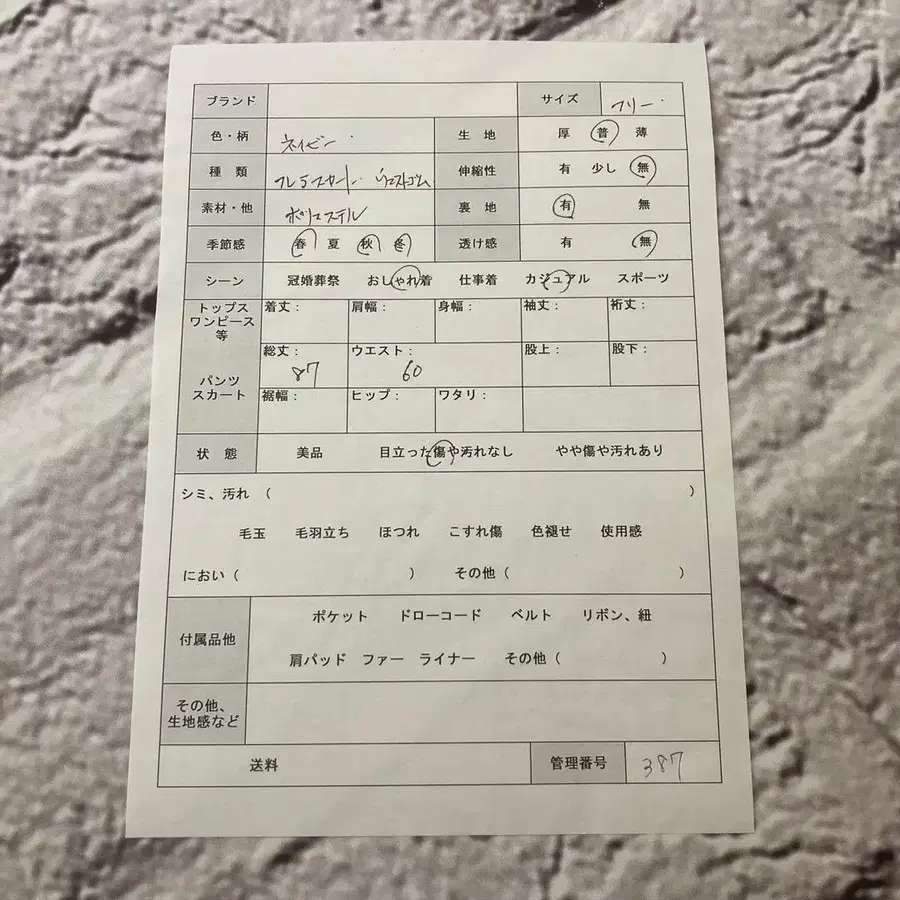 ブランド サイズ フリー
色・柄 ネイビー 生地 厚 普 薄
種類 フレアスカート ウエストゴム 伸縮性 有 少し 無
素材・他 ポリエステル 裏地 有 無
季節感 春 夏 秋 冬 透け感 有 無
シーン 冠婚葬祭 おしゃれ着 仕事着 カジュアル スポーツ
トップス
ワンピース
等
着丈: 肩幅: 身幅: 袖丈: 裄丈:
パンツ
スカート
総丈: 87 ウエスト: 60 股上: 股下:
裾幅: ヒップ: ワタリ:
状態 美品 目立った傷や汚れなし やや傷や汚れあり
シミ、汚れ ( )
毛玉 毛羽立ち ほつれ こすれ傷 色褪せ 使用感
におい ( ) その他 ( )
付属品他 ポケット ドローコード ベルト リボン、紐
肩パッド ファー ライナー その他 ( )
その他、
生地感など
送料 管理番号 387